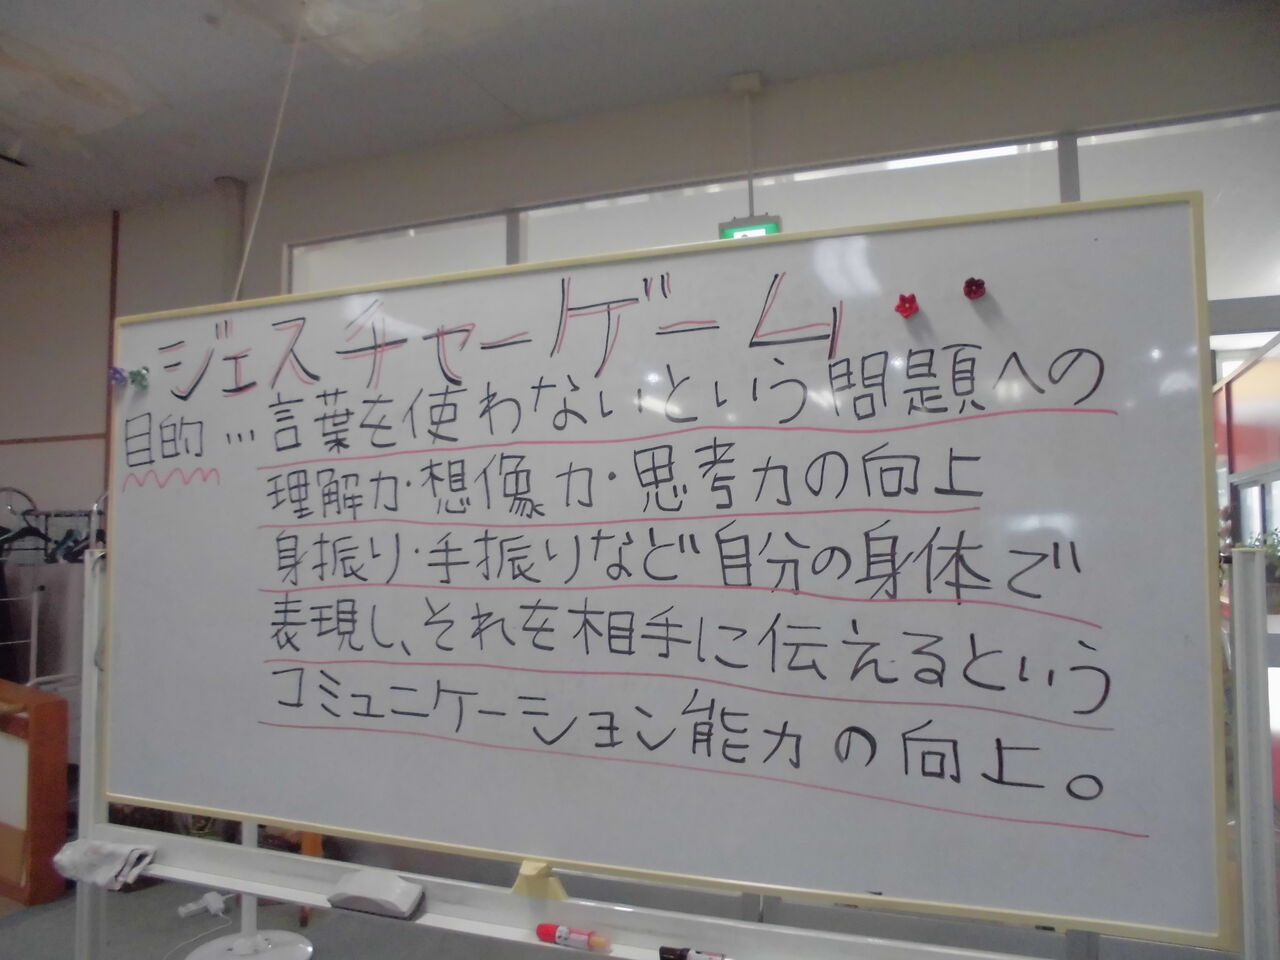 ジェスチャーゲーム
目的…言葉を使わないという問題への
理解力・想像力・思考力の向上
身振り・手振りなど自分の身体で
表現し、それを相手に伝えるという
コミュニケーション能力の向上。